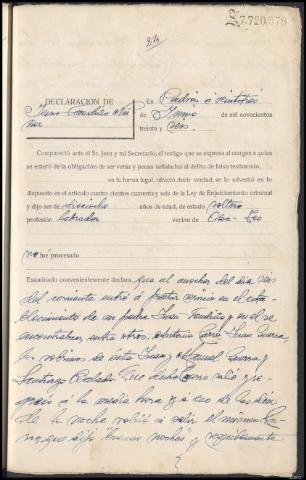 7.720.678
DECLARACION DE
En Padrón a veintitrés
de Junio de mil novecientos
treinta y seis.
Compareció ante el Sr. Juez y mi Secretario, el testigo que se expresa al margen a quien
se enteró de la obligación de ser veraz y penas señaladas al delito de falso testimonio,
en la forma legal, ofreció decir verdad, se lo advertió en lo
dispuesto en el artículo cuatro cientos cuarenta y seis de la Ley de Enjuiciamiento criminal
y dijo ser de dieciocho años de edad, de estado soltero
profesión labrador vecino de Teo
no fué procesado.
Examinado convenientemente declara, que al anochecer del día
del corriente entró a prestar servicio en el esta-
blecimiento de su padre Juan y en el se
encontraban, entre otros, Antonio Juan Guerra,
los vecinos de esta y Manuel Guerra y
Santiago Que dicho salió y re-
gresó a la media hora y a eso de las diez
de la noche volvió a salir el mismo
que dijo "buenas noches" y seguidamente